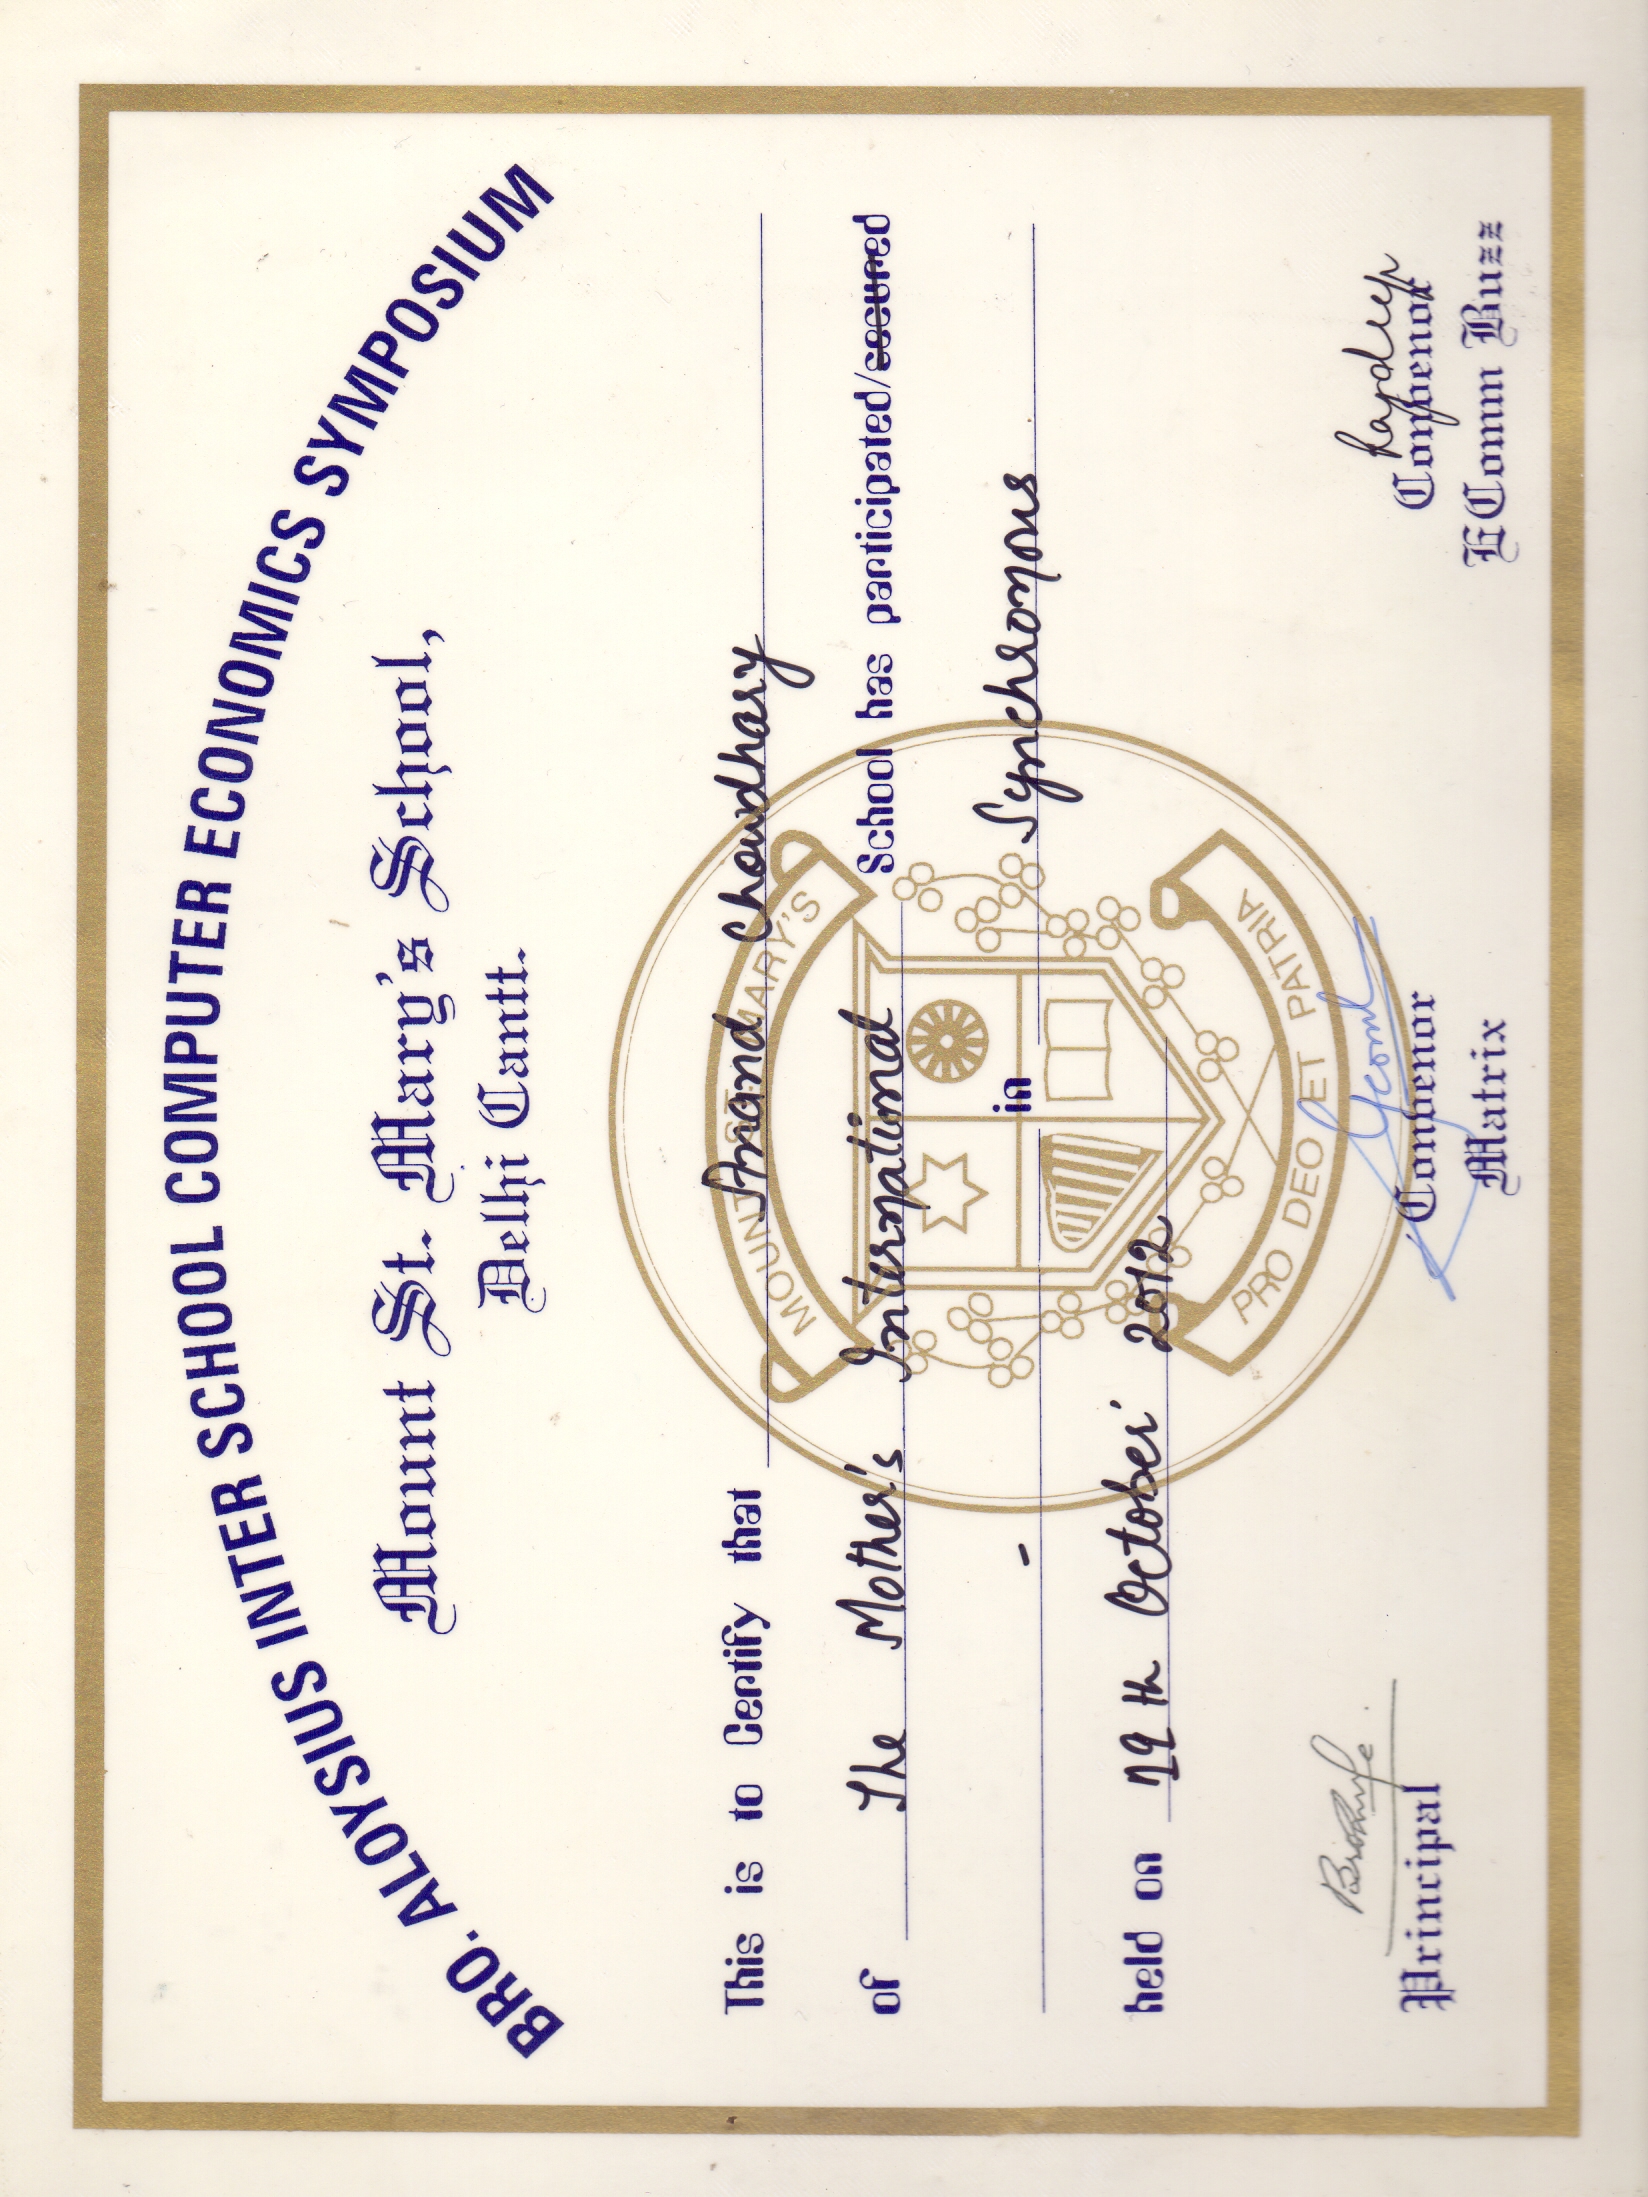 BRO. ALOYSIUS INTER SCHOOL COMPUTER ECONOMICS SYMPOSIUM
Mount St. Mary's School,
Delhi Cantt.
This is to Certify that Anand Choudhary
MOUNT ST. MARY'S
of The Mother's International School has participated/secured
- in Synchronous
held on 19th October 2012
PRO DEO ET PATRIA
Rajdeep
Principal Convenor Convenor
Matrix EComm Buzz